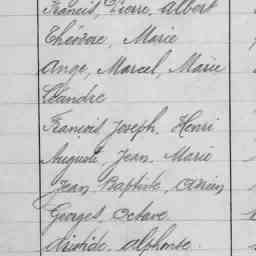 Francis, Pierre, Albert
Théodore, Marie
Ange, Marcel, Marie
Léandre
François, Joseph, Henri
Auguste, Jean, Marie
Jean Baptiste, Adrien
Georges, Octave
Aristide, Alphonse.